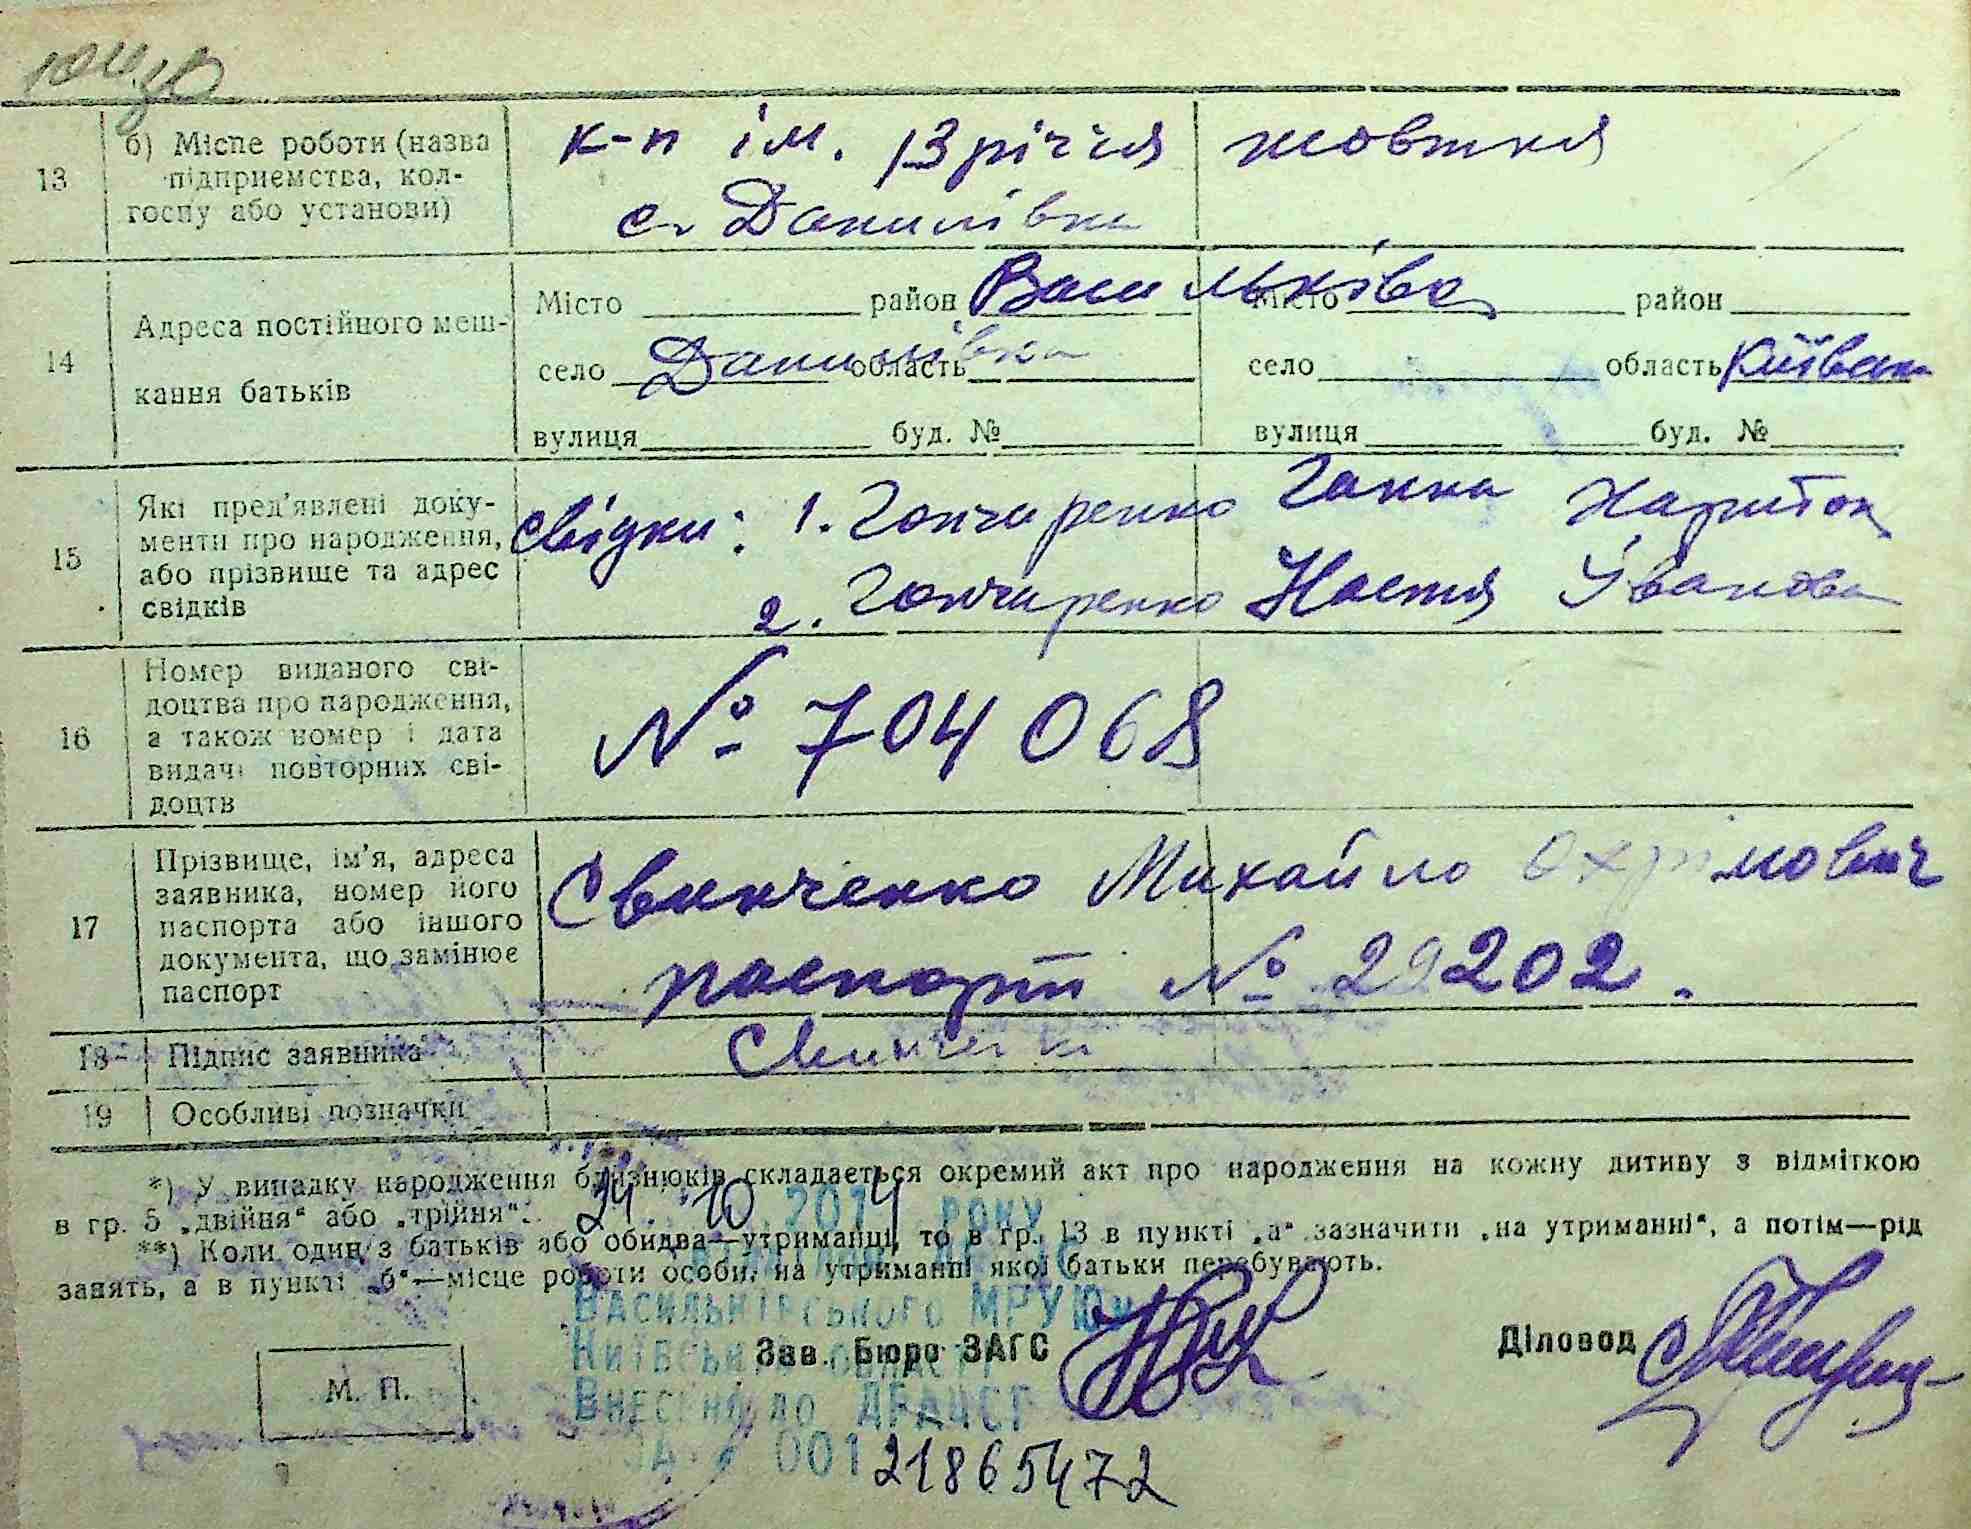 13 б) Місце роботи (назва підприємства, колгоспу або установи) к-п ім. 13 річчя жовтня
с. Данилівка
14 Адреса постійного мешкання батьків
Місто район Васильків Місто район
село Данилівка область село область Київська
вулиця буд. № вулиця буд. №
15 Які пред'явлені документи про народження, або прізвище та адрес свідків
Свідки: 1. Гончаренко Ганна Харитон
2. Гончаренко Настя Іванова
16 Номер виданого свідоцтва про народження, а також номер і дата видачі повторних свідоцтв
№ 704068
17 Прізвище, ім'я, адреса заявника, номер його паспорта або іншого документа, що замінює паспорт
Свинченко Михайло Охрімович
паспорт № 29202.
18 Підпис заявника
19 Особливі позначки
*) У випадку народження близнюків складається окремий акт про народження на кожну дитину з відміткою
в гр. 5 „двійня“ або „трійня“.
24 10 2014 року
**) Коли один з батьків або обидва—утриманці, то в гр. 13 в пункті „а“ зазначити „на утриманні“, а потім—рід
занять, а в пункті „б“—місце роботи особи, на утриманні якої батьки перебувають.
Васильківського МРУЮ
Київської області
Зав. Бюро ЗАГС
Діловод
М. П.
Внесено до ДРАЦСГ
за № 00121865472